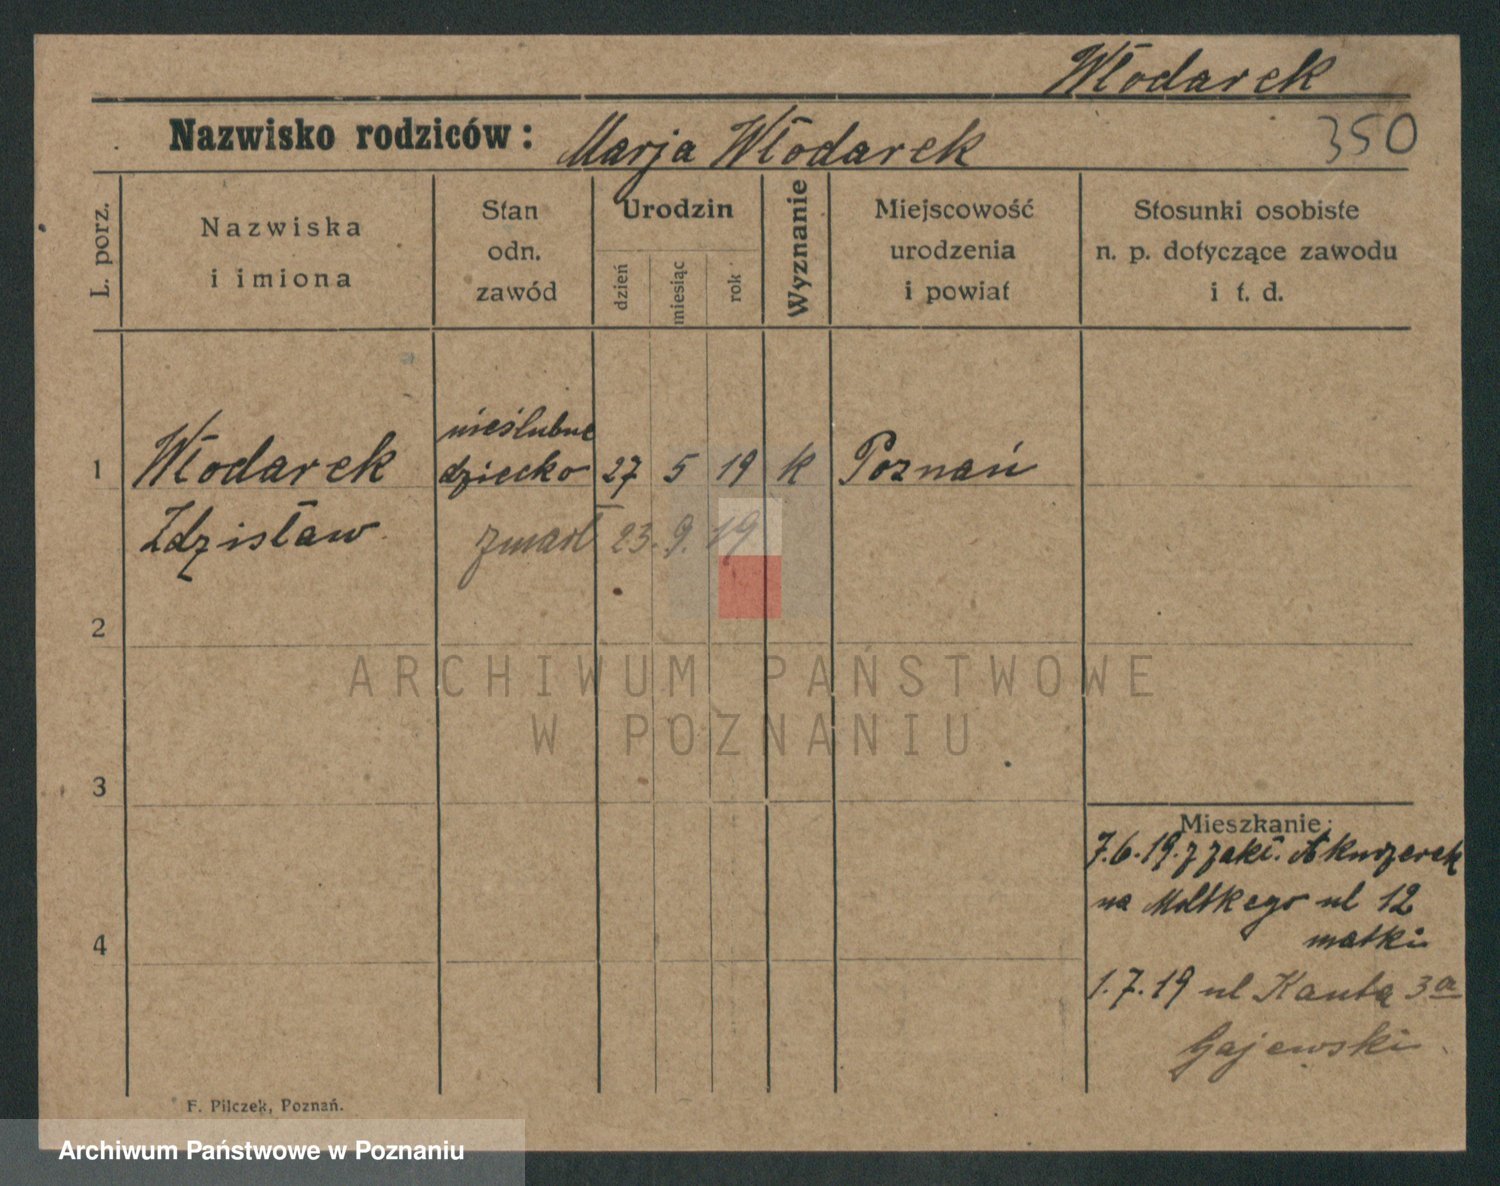 Włodarek
Nazwisko rodziców: Marja Włodarek
350
L. porz.
Nazwiska
i imiona
Stan
odn.
zawód
Urodzin
dzień
miesiąc
rok
Wyznanie
Miejscowość
urodzenia
i powiat
Stosunki osobiste
n. p. dotyczące zawodu
i t. d.
nieślubne
1 Włodarek dziecko 27 5 19 k Poznań
Zdzisław zmarł 23. 9. 19
2
ARCHIWUM PAŃSTWOWE
W POZNANIU
3
Mieszkanie:
7.6.19. z zakł. Akuszerek
na Moltkego ul 12
4
matki
1.7.19 ul Kanta 3a
Gajewski
F. Pilczek, Poznań.
Archiwum Państwowe w Poznaniu